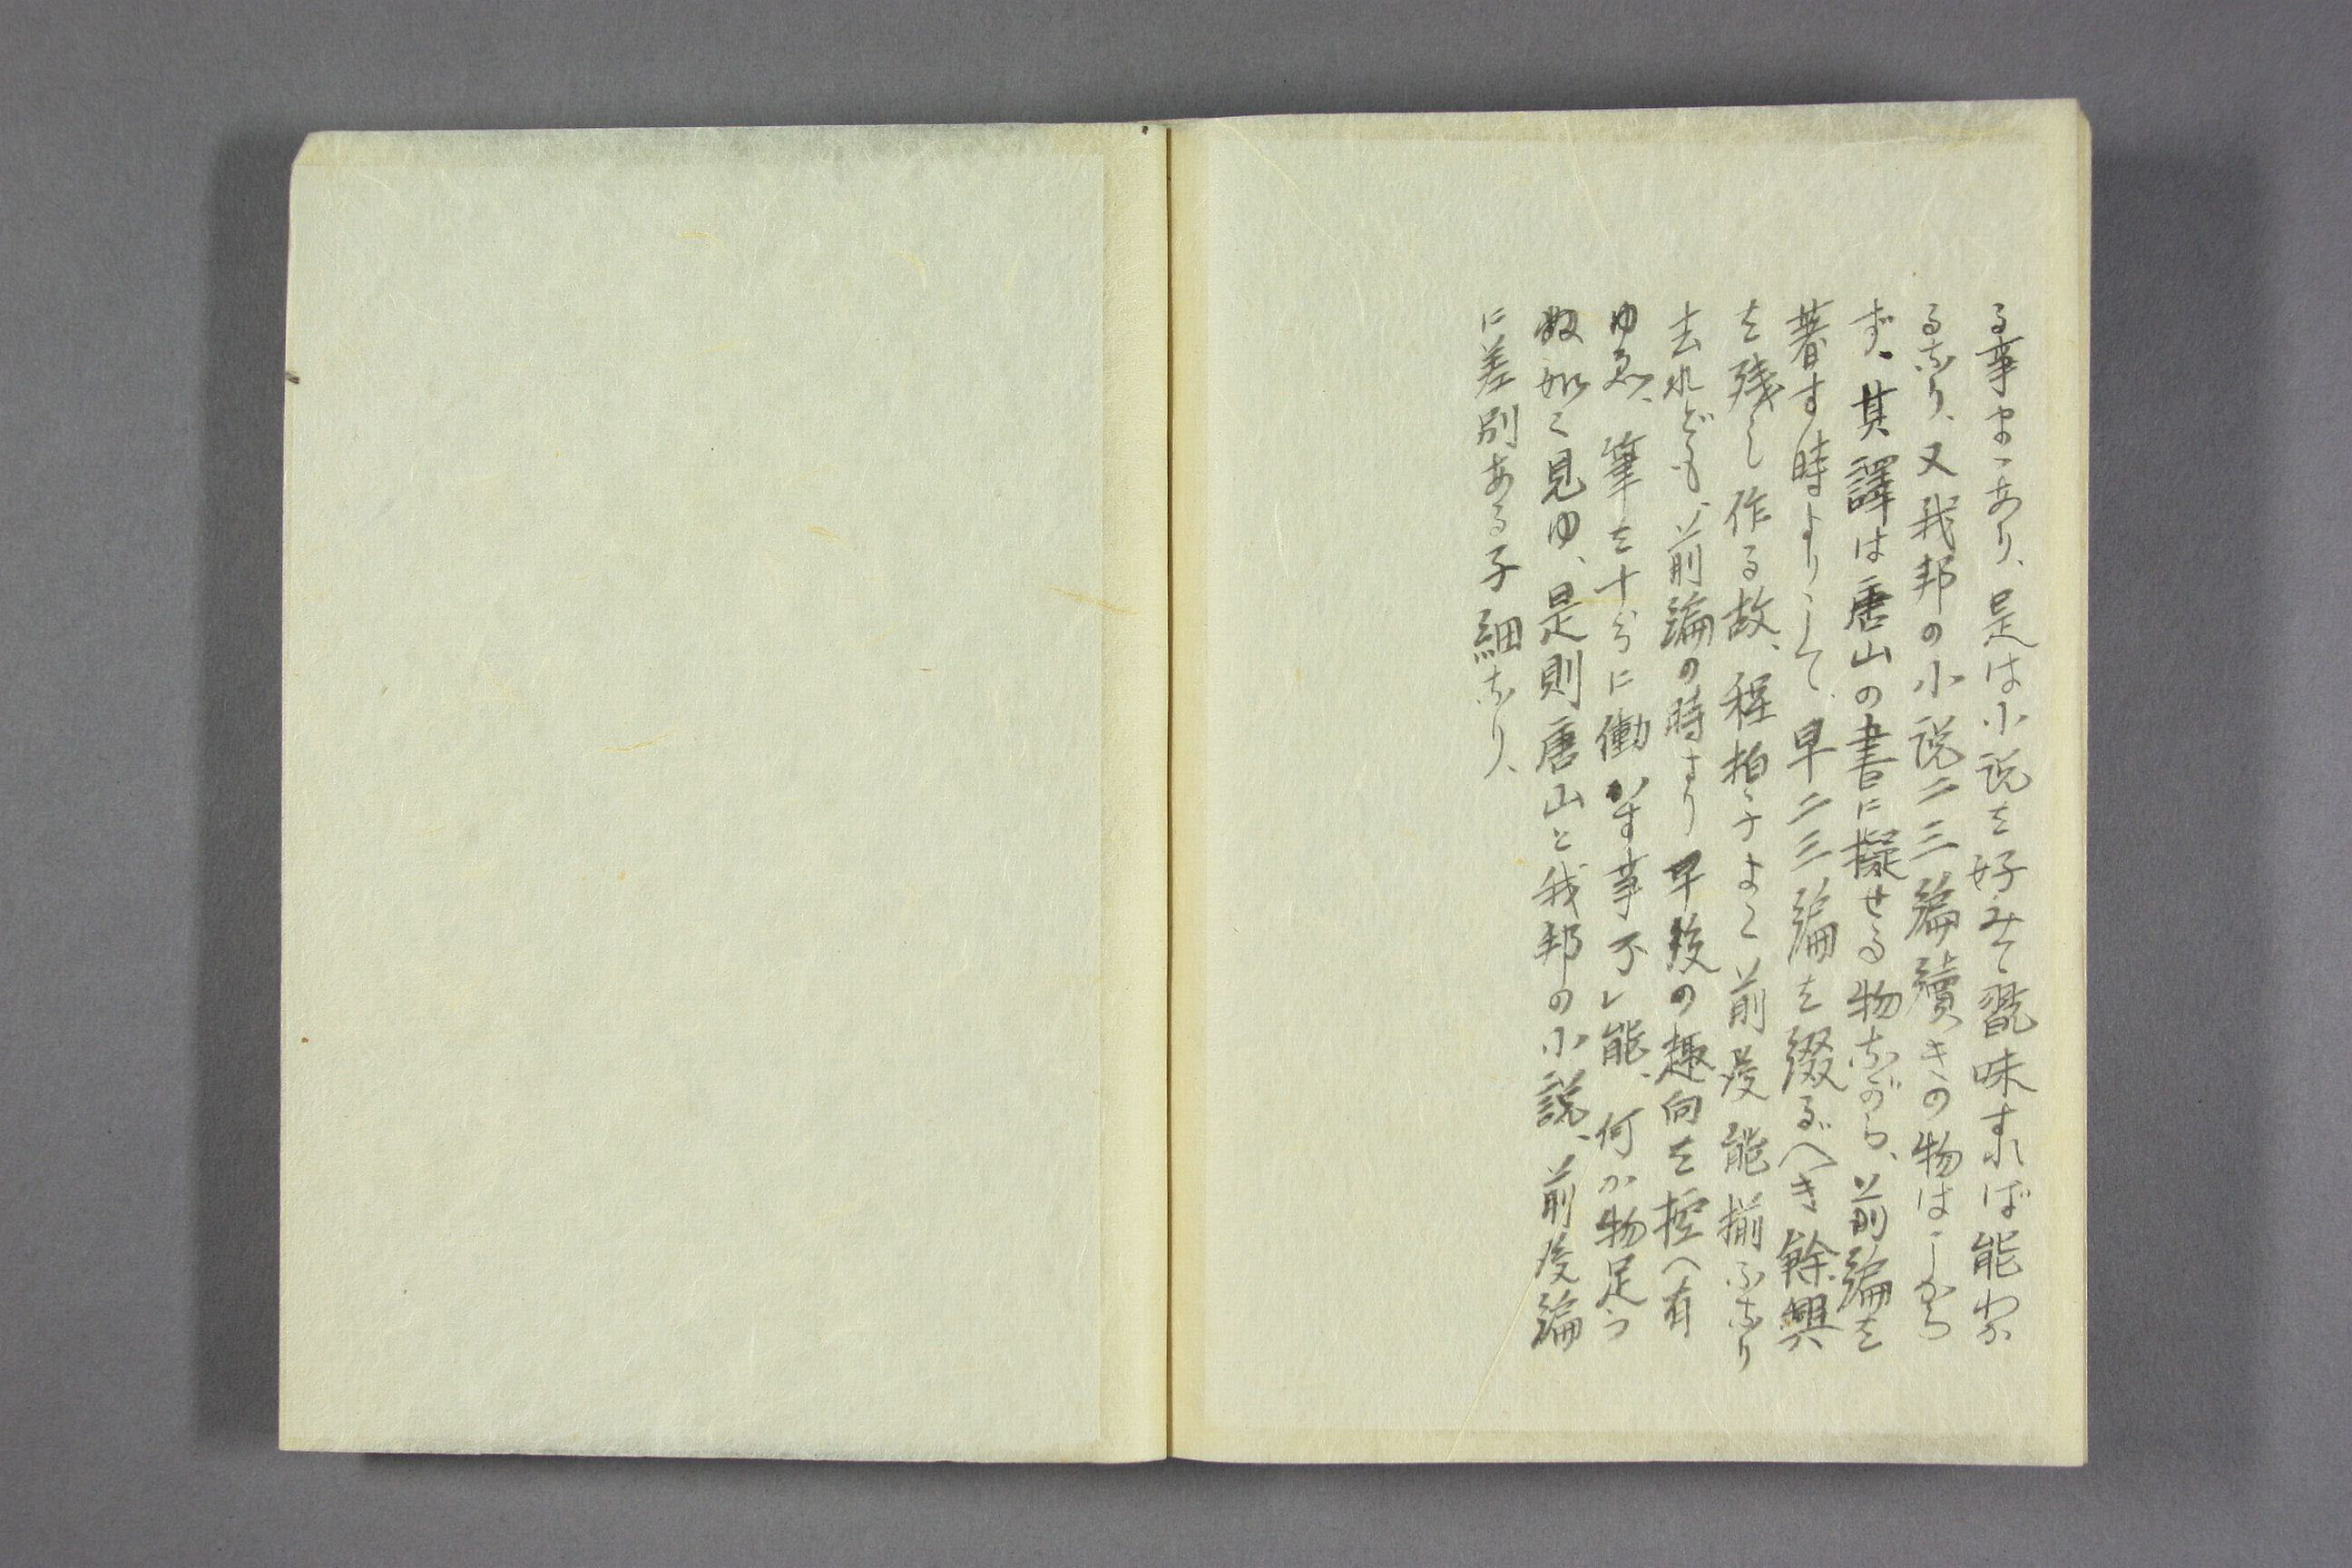 る事まゝあり、是は小説を好みて翫味すれば能わか
るなり、又我邦の小説二三篇續きの物はしから
ず、其譯は唐山の書に擬せる物ながら、前編を
著す時よりして、早二三編を綴るべき餘興
を残し作る故、程拍子よく前後能揃ふなり
去れども、前編の時より早後の趣向を控へ有
ゆゑ、筆を十分に働かす事不レ能、何か物足ら
ぬ如く見ゆ、是則唐山と我邦の小説、前後編
に差別ある子細なり、